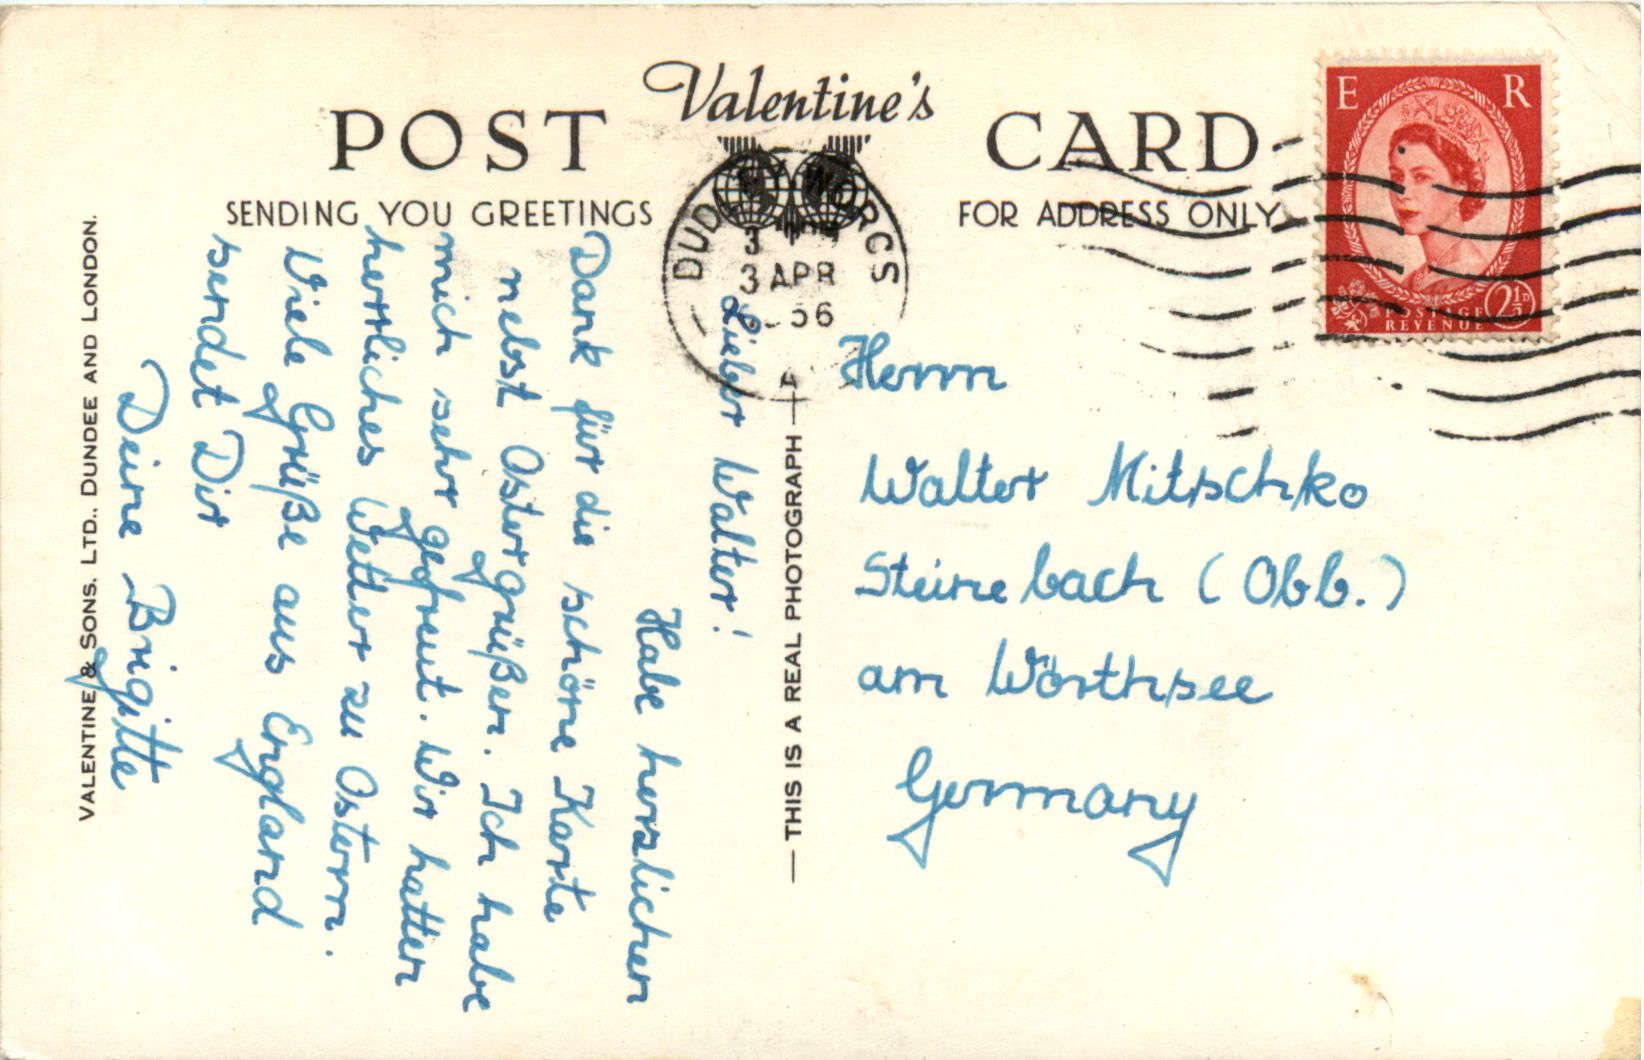 Valentine's
POST CARD
SENDING YOU GREETINGS
FOR ADDRESS ONLY
E R
POSTAGE
REVENUE
2½D
3 APR
56
Lieber Walter!
Habe herzlichen
Dank für die schöne Karte
nebst Ostergrüßen. Ich habe
mich sehr gefreut. Wir hatten
herrliches Wetter zu Ostern.
Viele Grüße aus England
sendet Dir
Deine Brigitte
Herrn
Walter Mitschko
Steinebach (Obb.)
am Wörthsee
Germany
THIS IS A REAL PHOTOGRAPH
VALENTINE & SONS. LTD., DUNDEE AND LONDON.